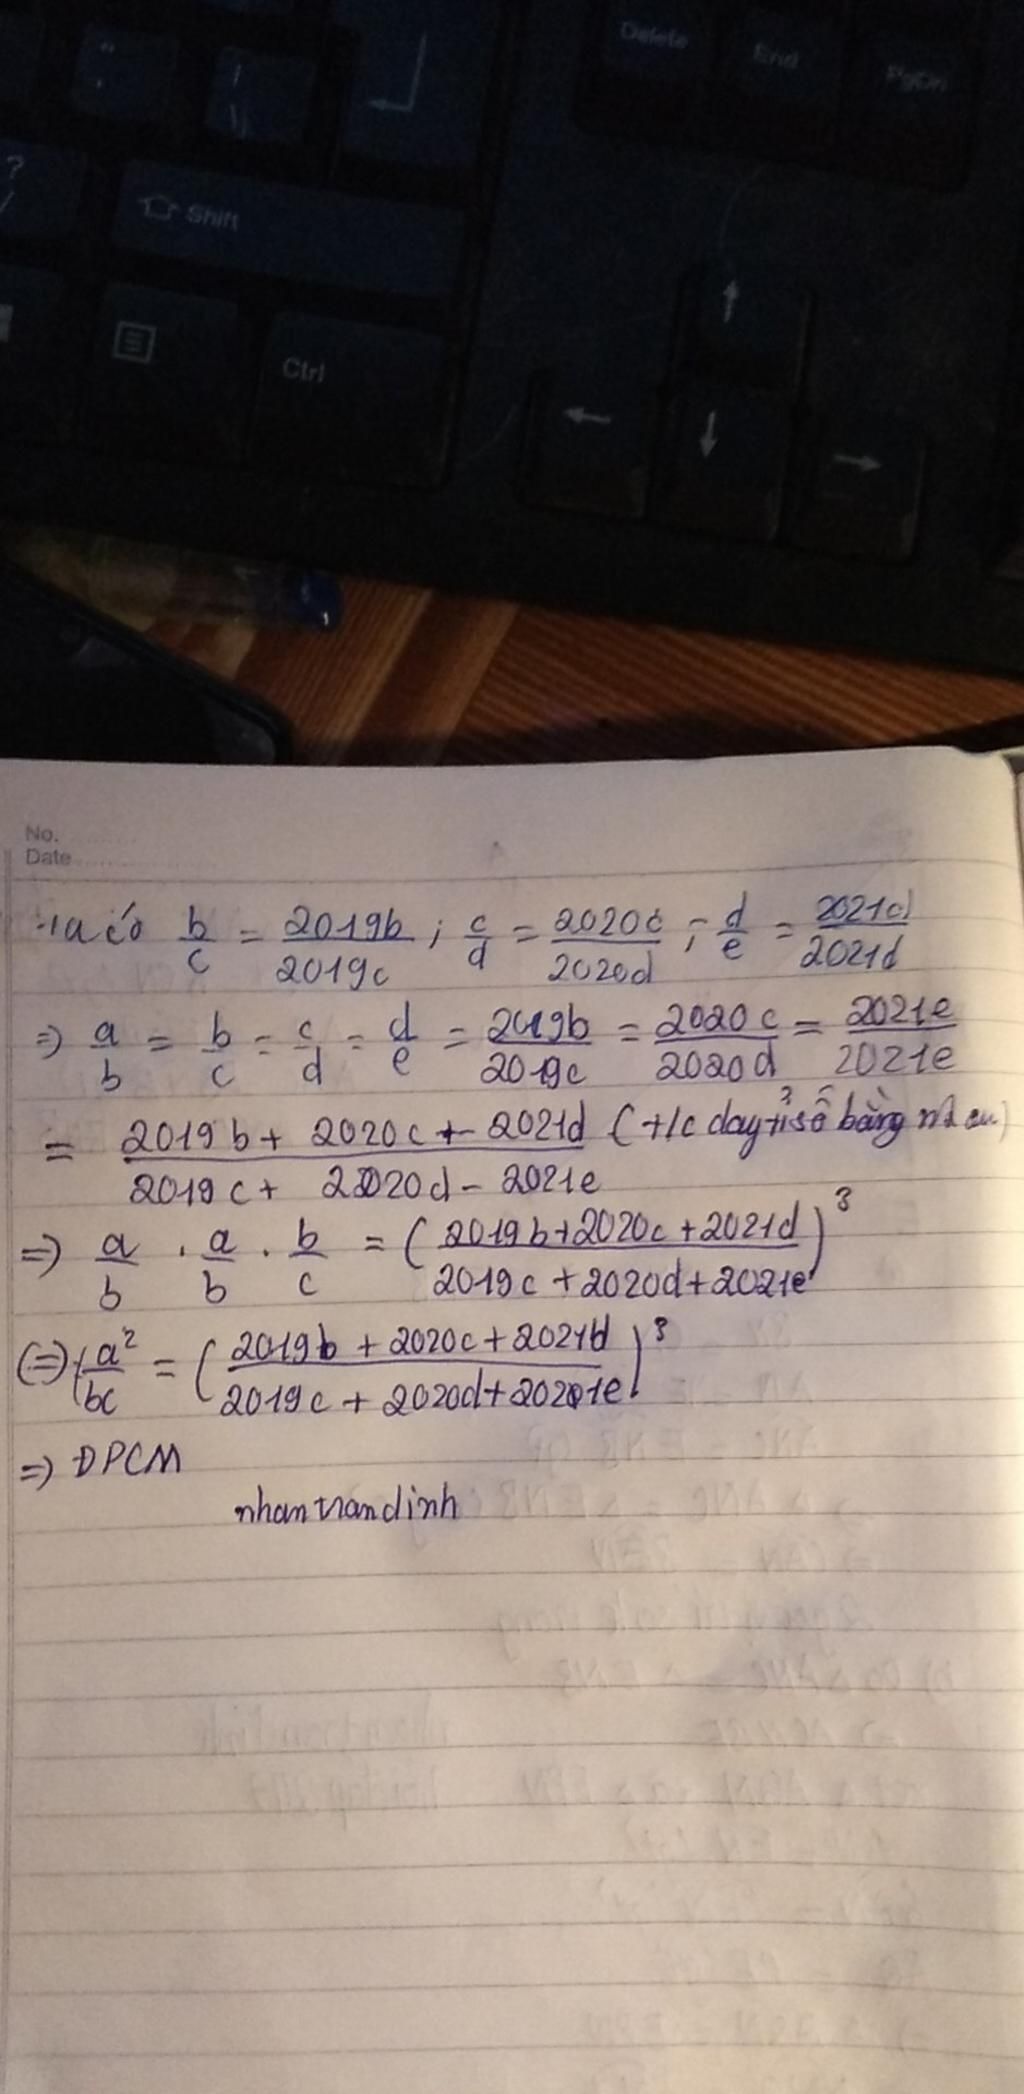 "
'
|
\\
Delete
End
PgDn
?
/
Shift
Ctrl
No.
Date
Ta có b/c = 2019b/2019c ; c/d = 2020c/2020d ; d/e = 2021d/2021d
=> a/b = b/c = c/d = d/e = 2019b/2019c = 2020c/2020d = 2021e/2021e
= 2019b + 2020c + 2021d / 2019c + 2020d - 2021e (t/c day tỉ số bằng nhau)
=> a/b . a/b . b/c = (2019b + 2020c + 2021d / 2019c + 2020d + 2021e)³
(=>) a²/bc = (2019b + 2020c + 2021d / 2019c + 2020d + 2021e)³
=> ĐPCM
nhantrandinh